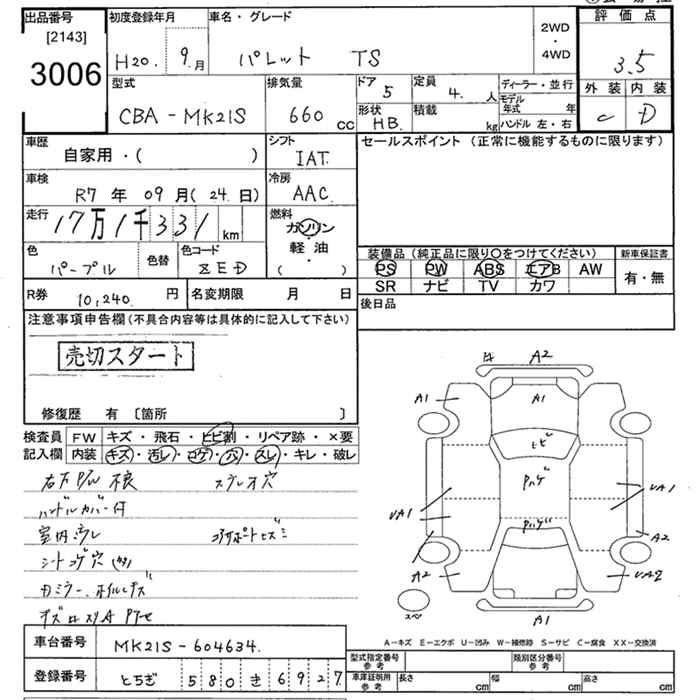 出品番号
[2143]
3006
初度登録年月
H20. 9.月
車名・グレード
パレット TS
2WD
・
4WD
評価点
3.5
外装 内装
C D
型式
CBA-MK21S
排気量
660 cc
ドア 5
定員 4. 人
形状 HB.
積載 kg
ディーラー・並行
モデル年式 年
ハンドル 左・右
車歴
自家用・( )
シフト
IAT.
セールスポイント(正常に機能するものに限ります)
車検
R7 年 09月(24.日)
冷房
AAC.
走行
17万1千331 km
燃料
ガソリン
・
軽・油
( )
色
パープル
色替
色コード
ZED
装備品(純正品に限り〇をつけてください)
PS PW ABS エアB AW
SR ナビ TV カワ
新車保証書
有・無
R券 10,240. 円
名変期限 月 日
後日品
注意事項申告欄(不具合内容等は具体的に記入して下さい)
売切スタート
修復歴 有〔箇所 〕
検査員記入欄
FW キズ・飛石・ヒビ割・リペア跡・×要
内装 キズ・汚レ・コゲ・ハ・スレ・キレ・破レ
右方P/W 不良
ハンドルカバー付
室内汚レ
シートコゲ穴
キ A2
A1 A1
ヒビ
UA1 UA1
A2 A2
A2 UA2
スペ A1
A-キズ E-エクボ U-凹み W-補修跡 S-サビ C-腐食 XX-交換済
車台番号
MK21S-604634.
登録番号
とちぎ 580 き 6927
型式指定番号
参考
類別区分番号
参考
車庫証明用
参考
長さ cm
幅 cm
高さ cm